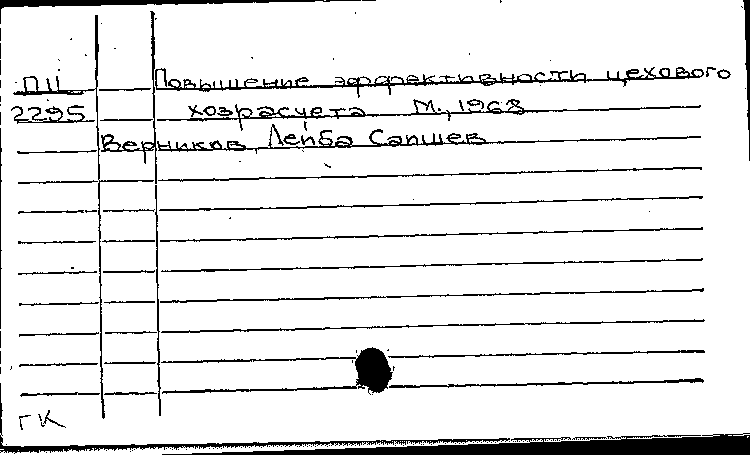 П11 Повышение эффективности цехового
2295 хозрасчета М., 1968
Верников, Лейба Сапшев
ГК